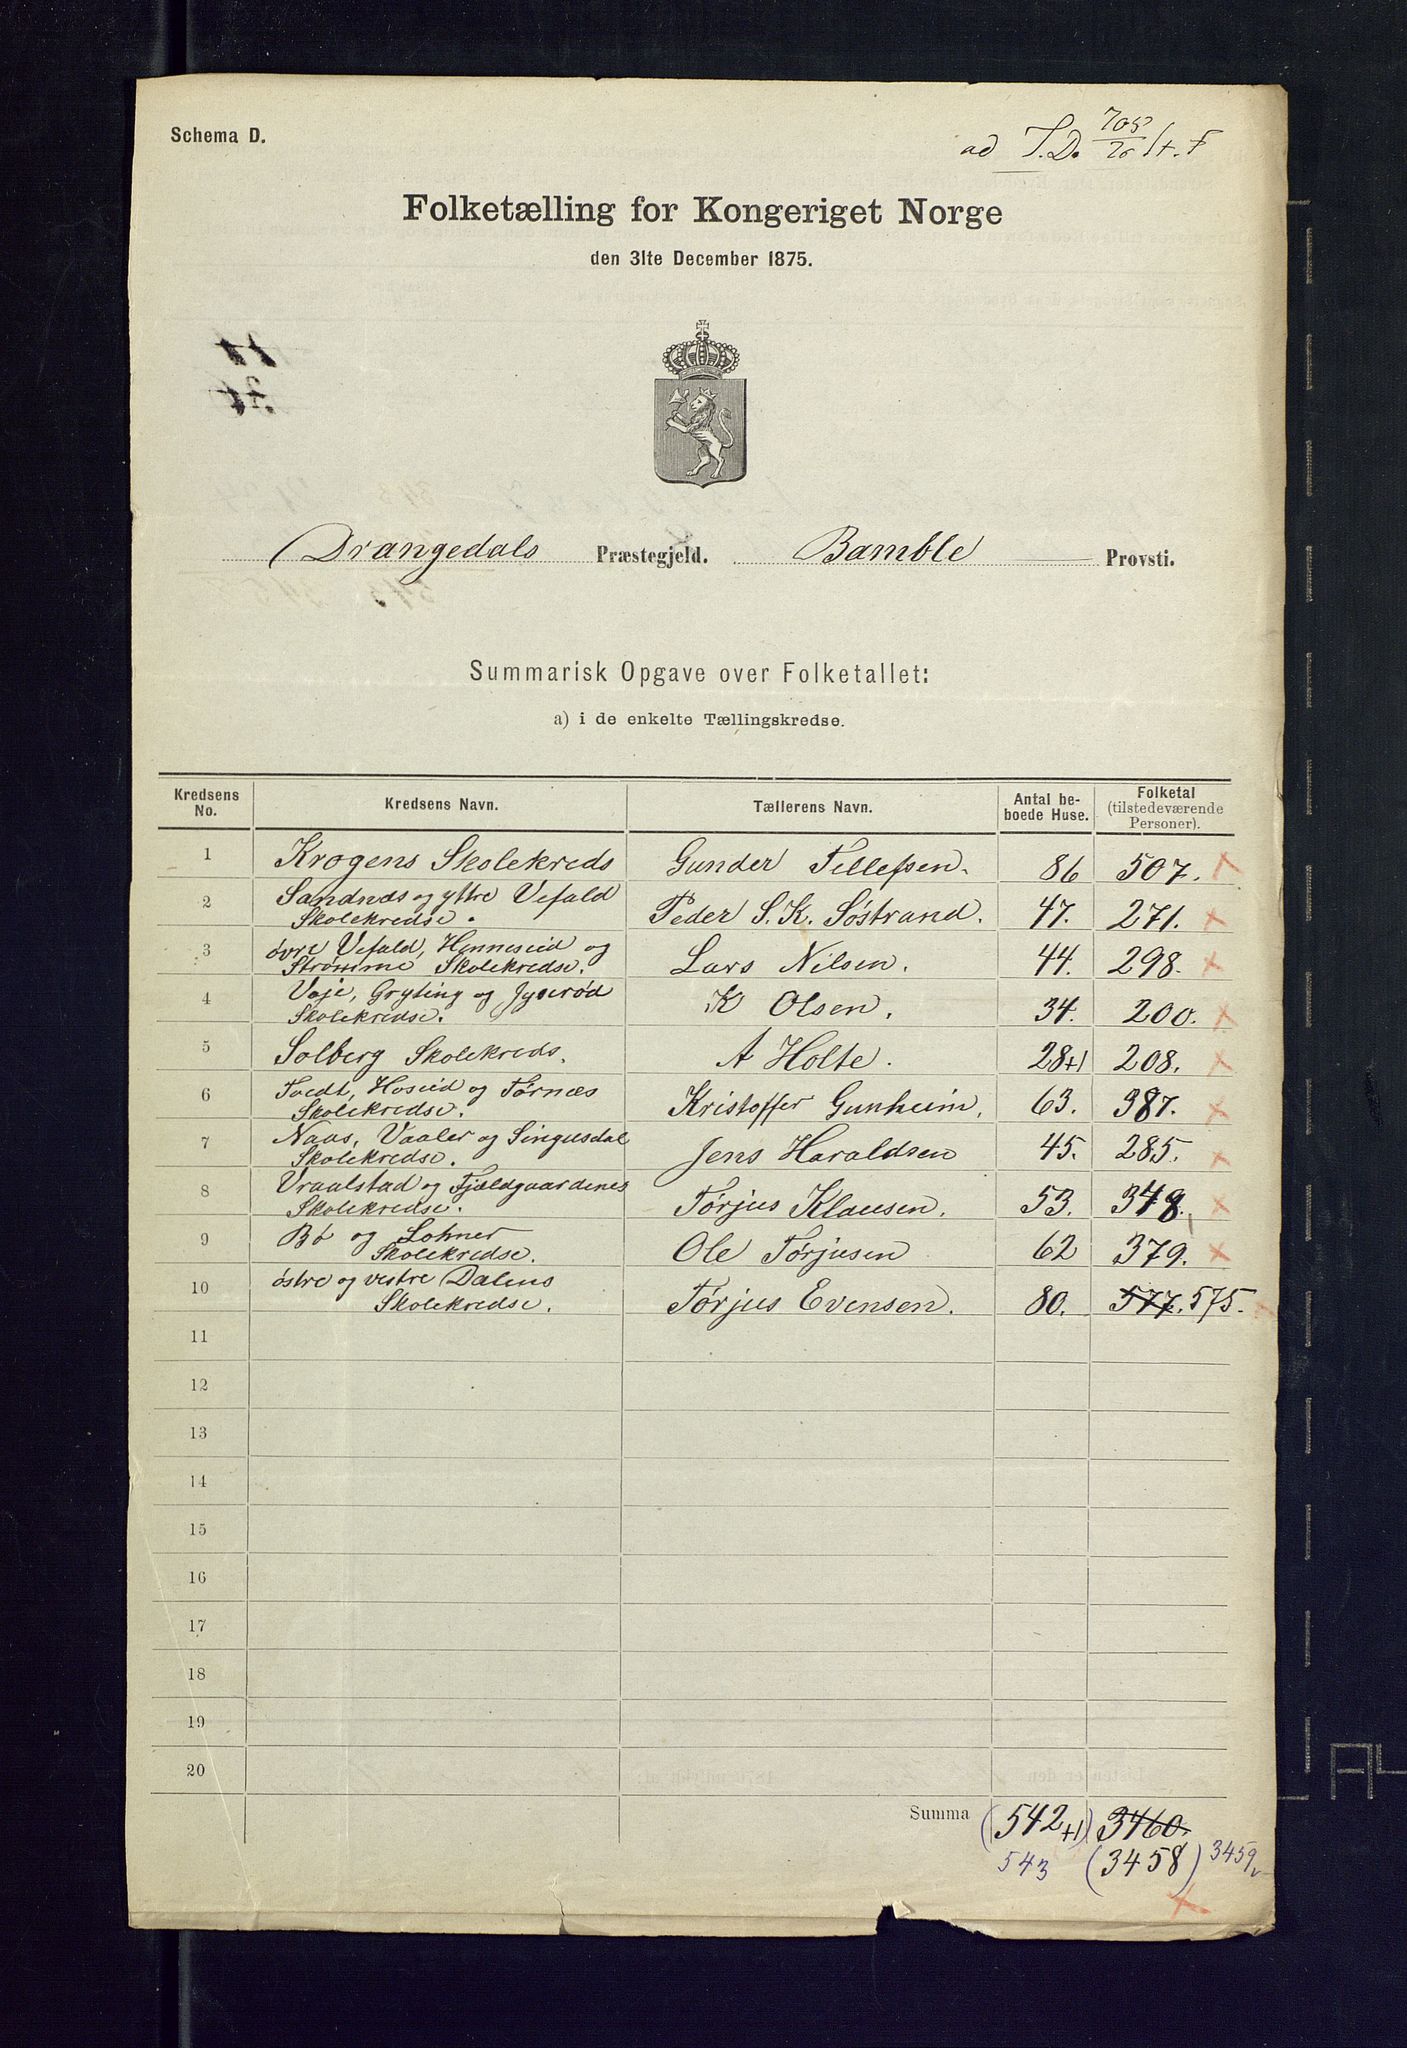 Schema D.
ad J.D. 705/76 St. F
Folketælling for Kongeriget Norge
den 31te December 1875.
Drangedals Præstegjeld. Bamble Provsti.
Summarisk Opgave over Folketallet:
a) i de enkelte Tællingskredse.
Kredsens No. Kredsens Navn. Tællerens Navn. Antal beboede Huse. Folketal (tilstedeværende Personer).
1 Krogens Skolekreds Gunder Tellefsen. 86 507.
2 Sandnæs og ytre Vefald Skolekredse. Peder S. K. Søstrand. 47. 271.
3 øvre Vefald, Henneseid og Strømme Skolekredse. Lars Nilsen. 44. 298.
4 Voje, Gryting og Jyserød Skolekredse. K Olsen. 34. 200.
5 Solberg Skolekreds. A Holte. 28+1 208.
6 Tvedt, Hoseid og Tørnæs Skolekredse. Kristoffer Gunheim. 63. 387.
7 Naas, Vaaler og Singusdal Skolekredse. Jens Haraldsen 45. 285.
8 Vraalstad og Fjældgaardenes Skolekredse. Tørjus Klausen. 53. 348.
9 Bø og Lohner Skolekredse. Ole Tørjusen 62 379.
10 østre og vestre Dalens Skolekredse. Tørjus Evensen. 80. 577. 575.
11
12
13
14
15
16
17
18
19
20
Summa (542+1) 3460.
543 (3458) 3459